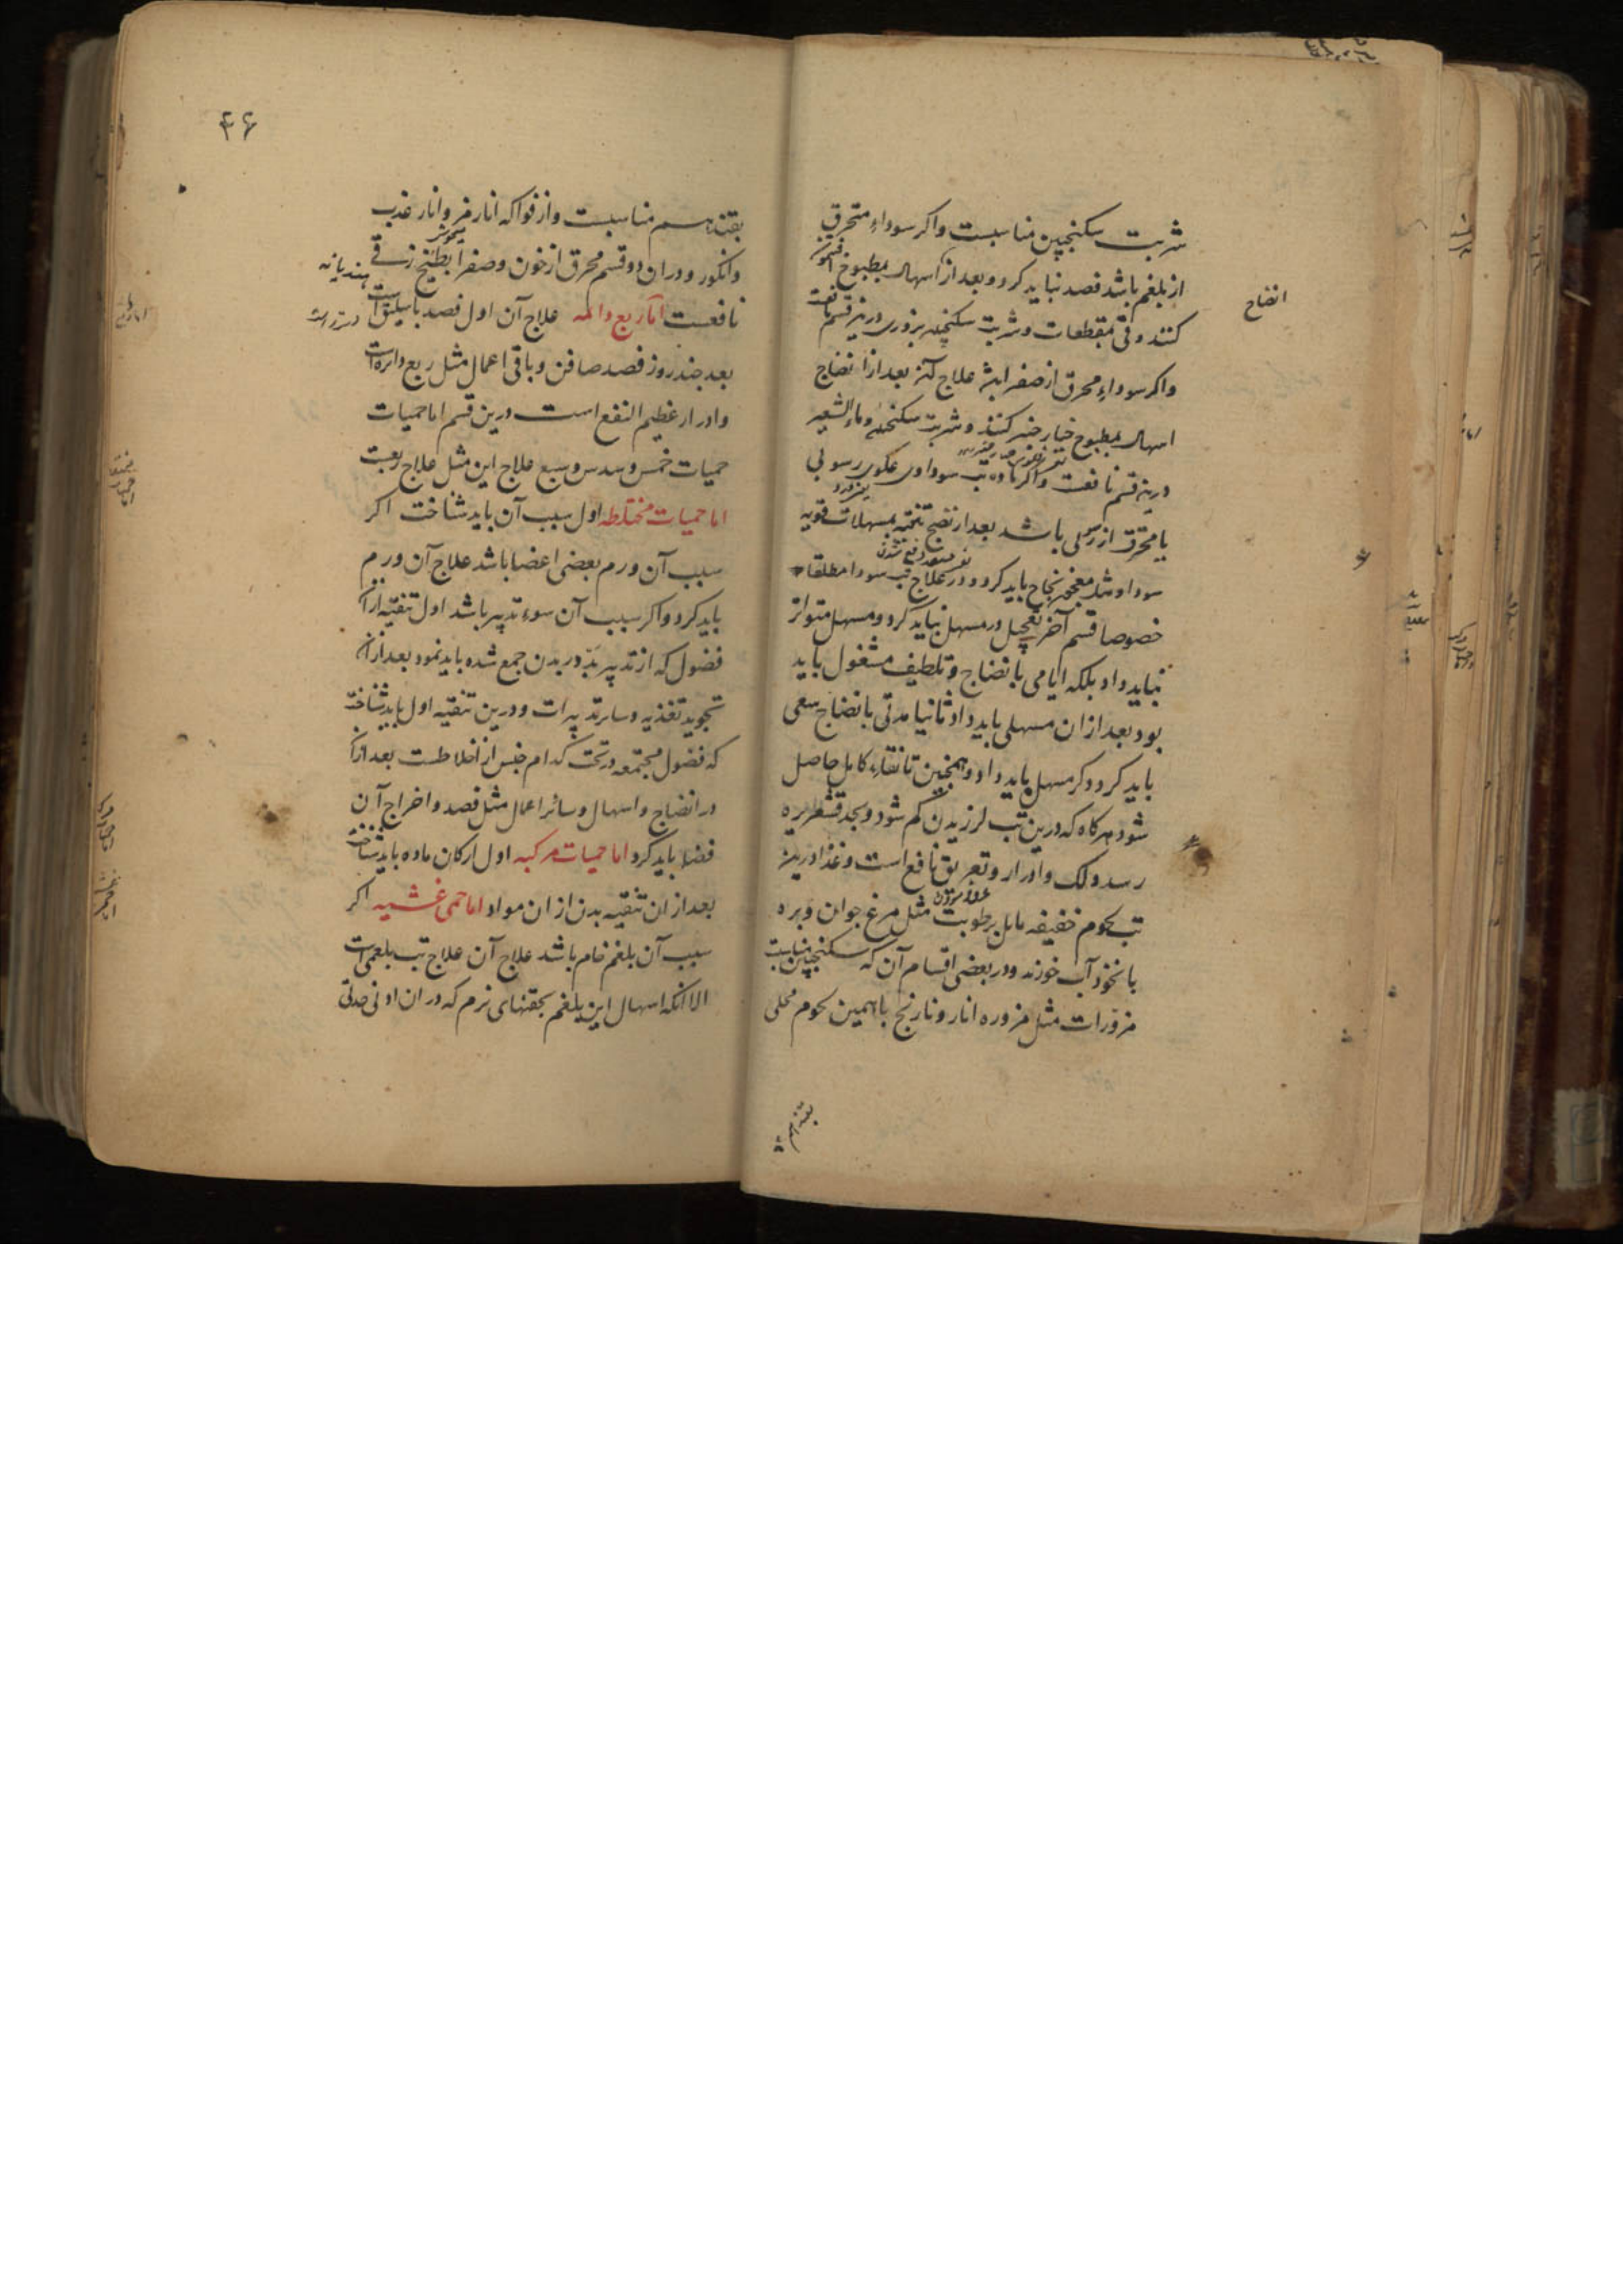 شربت سکنجبین مناسبست واکر سوداء متحرق
از بلغم باشد فصد نباید کرد و بعد از اسهال بمطبوخ افتیمون
انضاج
کنند و قی بمقطعات و شربت سکنجبین بزوری درین قسم نافعست
واکر سوداء محرق از صفرا باشد علاج کنند بعد از انضاج
اسهال بمطبوخ خیارچنبر کنند و شربت سکنجبین و ماء الشعیر
درین قسم نافعست واکر ماده تب سوداوی عکری رسوبی
یا محترق از رسوبی باشد بعد از نضج تنقیه بمسهلات قویه
سودا و مثل معجون نجاح باید کرد و در علاج تب سودا مطلقا
خصوصا قسم آخر تعجیل در مسهل نباید کرد و مسهل متواتر
نباید داد بلکه ایامی بانضاج و تلطیف مشغول باید
بود بعد از ان مسهلی باید داد ثانیا مدتی بانضاج سعی
باید کرد و کر مسهل باید داد و همچنین تا نقاء کامل حاصل
شود هرکاه که درین تب لرزیدن کم شود و بحد قشعریره
رسد دلک و ادرار و تعریق نافع است و غذا درین
تب لحوم خفیفه مایل برطوبت مثل مرغ جوان و بره
بانخود آب خورند و در بعضی اقسام آن که سکنجبین مناسبست
مزورات مثل مزوره انار و نارنج با همین لحوم محلی
بقند هم
۴۶
بقند هم مناسبست و از فواکه انار مز و انار عذب
میخوش
وانکور و در ان دو قسم محرق از خون و صفرا بطیخ زقی
هندیانه
نافعست اما ربع دائمه علاج آن اول فصد باسلیق است
بعد چند روز فصد صافن و باقی اعمال مثل ربع دائره است
وادرار عظیم النفع است درین قسم اما حمیات
حمیات خمس و سدس و سبع علاج این مثل علاج ربعست
اما حمیات مختلطه اول سبب آن باید شناخت اکر
سبب آن ورم بعضی اعضا باشد علاج آن ورم
باید کرد واکر سبب آن سوء تدبیر باشد اول تنقیه ازان
فضول که از تدبیر بد در بدن جمع شده باید نمود بعد ازان
تجوید تغذیه و سایر تدبیرات و درین تنقیه اول باید شناخت
که فضول مجتمعه در تحت کدام جنس از اخلاطست بعد ازان
در انضاج و اسهال و سائر اعمال مثل فصد و اخراج آن
فضله باید کرد اما حمیات مرکبه اول ارکان ماده باید شناخت
بعد از ان تنقیه بدن از ان مواد اما حمی غشییه اکر
سبب آن بلغم خام باشد علاج آن علاج تب بلغمی است
الا آنکه اسهال این بلغم بحقنهای نرم که در ان ادنی حدتی